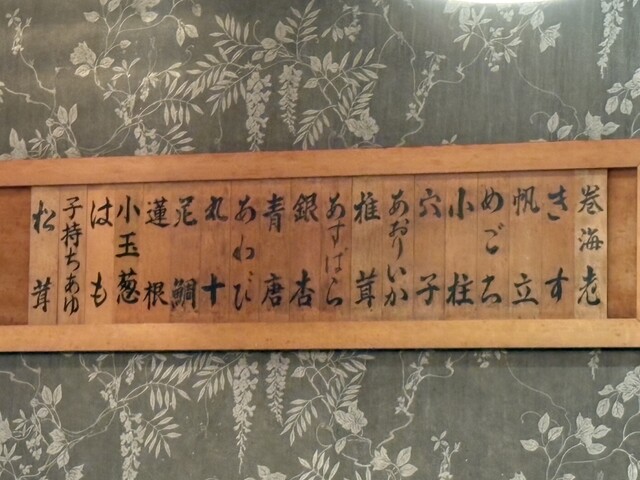 巻海老
きす
帆立
めごち
小柱
穴子
あおりいか
椎茸
あすぱら
銀杏
青唐
あわび
丸十
尼鯛
蓮根
小玉葱
はも
子持ちあゆ
松茸